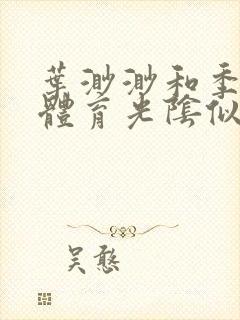 葉渺渺和季
體育光陰似
吳憨